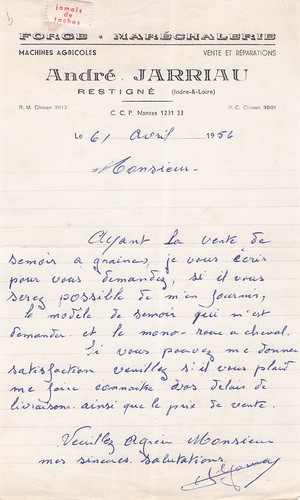 jamais
de
taches
FORGE - MARÉCHALERIE
MACHINES AGRICOLES VENTE ET RÉPARATIONS
André JARRIAU
RESTIGNÉ (Indre-&-Loire)
R. M. Chinon
C. C. P. Nantes 1231 33
R. C. Chinon
Le 6/ Avril 1956
Monsieur.
Ayant la vente de
semoir à graines, je vous écris
pour vous demandez, si il vous
serez possible de m'en fournir,
le modèle de semoir qui m'est
demander. et le mono-roue a cheval.
Si vous pouvez me donner
satisfaction veuillez s'il vous plait
me faire connaitre vos delais de
livraison. ainsi que le prix de vente.
Veuillez Agréer Monsieur
mes sincères salutations.